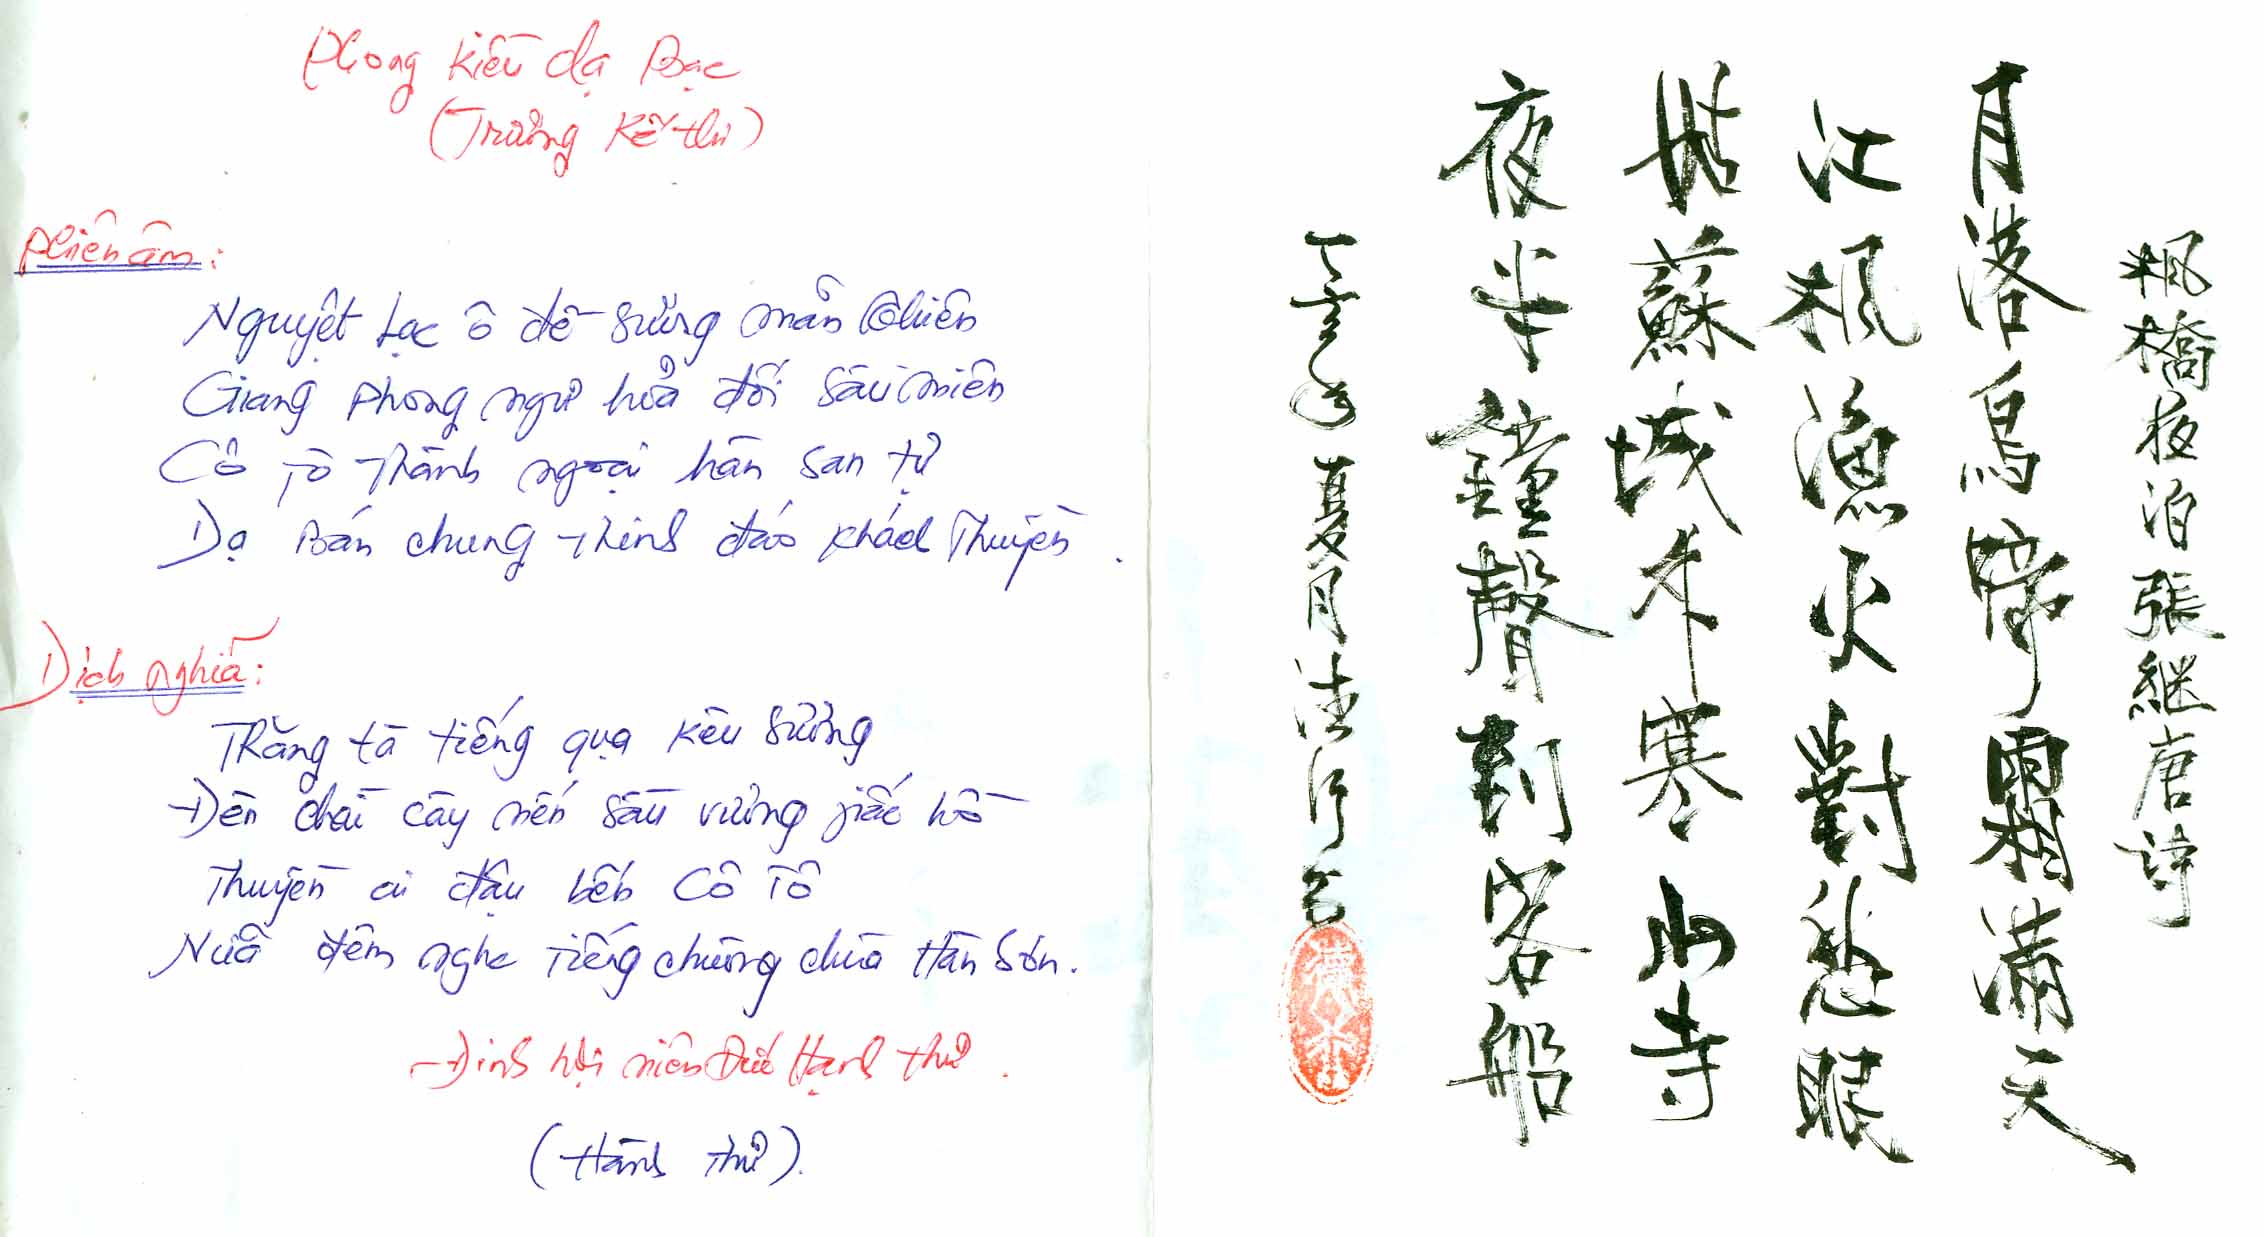 Phong Kiều dạ Bạc
(Trương Kế thi)
Phiên âm:
Nguyệt Lạc ô đề sương mãn thiên
Giang phong ngư hỏa đối sầu miên
Cô Tô Thành ngoại hàn san tự
Dạ Bán chung thinh đáo khách Thuyền.
Dịch nghĩa:
Trăng tà tiếng quạ kêu sương
Đèn chài cây bến sầu vương giấc hồ
Thuyền ai đậu bến Cô Tô
Nửa đêm nghe tiếng chuông chùa Hàn Sơn.
Đinh hợi niên Đức Hạnh thư.
(Hành thư).
楓橋夜泊張継唐詩
月落烏啼霜滿天
江楓漁火對愁眠
姑蘇城外寒山寺
夜半鐘聲到客船
丁亥年夏月德行書